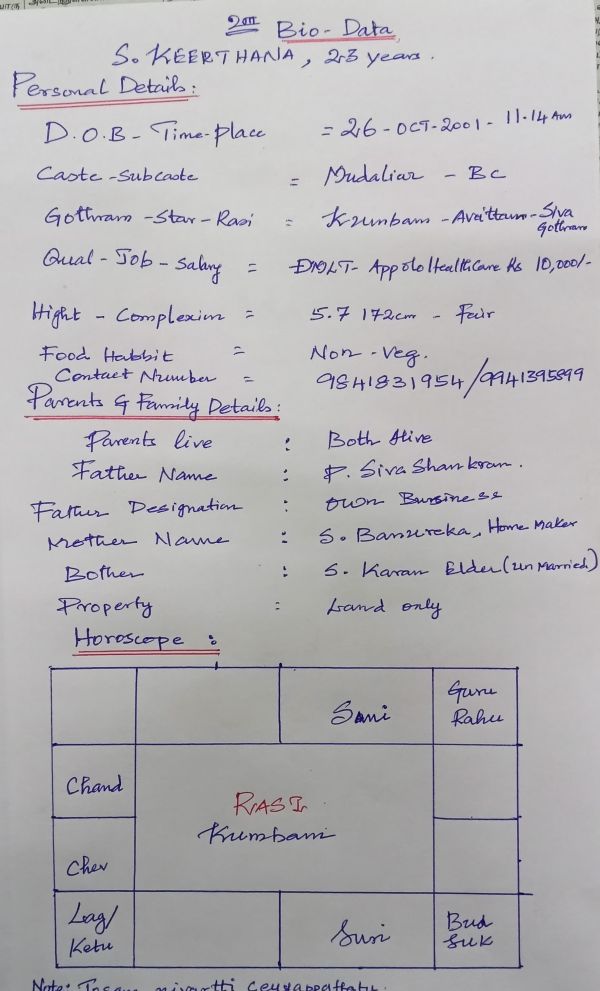 உ
Bio-Data
S. KEERTHANA, 23 years.
Personal Details:
D.O.B - Time-place = 26-OCT-2001 - 11.14 AM
Caste-Subcaste = Mudaliar - BC
Gothram-Star-Rasi = Kumbam-Avittam-Siva Gothram
Qual-Job-Salary = DMLT- Appolo HealthCare Rs 10,000/-
Hight - Complexion = 5.7 172cm - Fair
Food Habbit = Non-Veg.
Contact Number = 9841831954/9941395899
Parents & Family Details:
Parents live : Both Alive
Father Name : P. SivaShankran.
Father Designation : own Bussiness
Mother Name : S. Banureka, Home Maker
Bother : S. Karan Elder (un Married)
Property : Land only
Horoscope :
Sani
Guru
Rahu
Chand
RASI
Kumbam
Chev
Lag/
Ketu
Suri
Bud
Suk
Note: